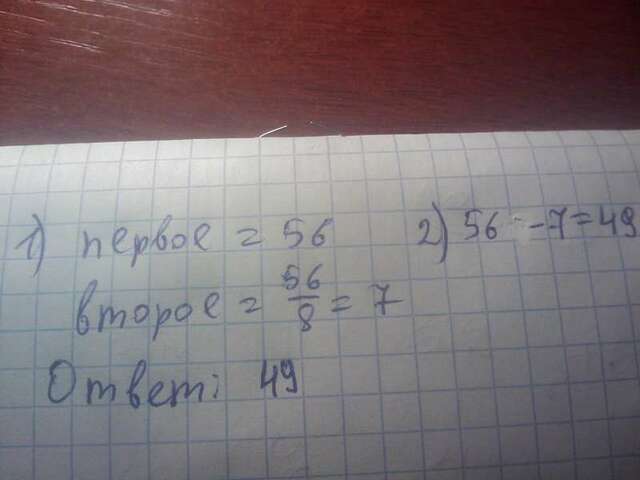 1) первое = 56
второе = 56/8 = 7
2) 56 - 7 = 49
Ответ: 49